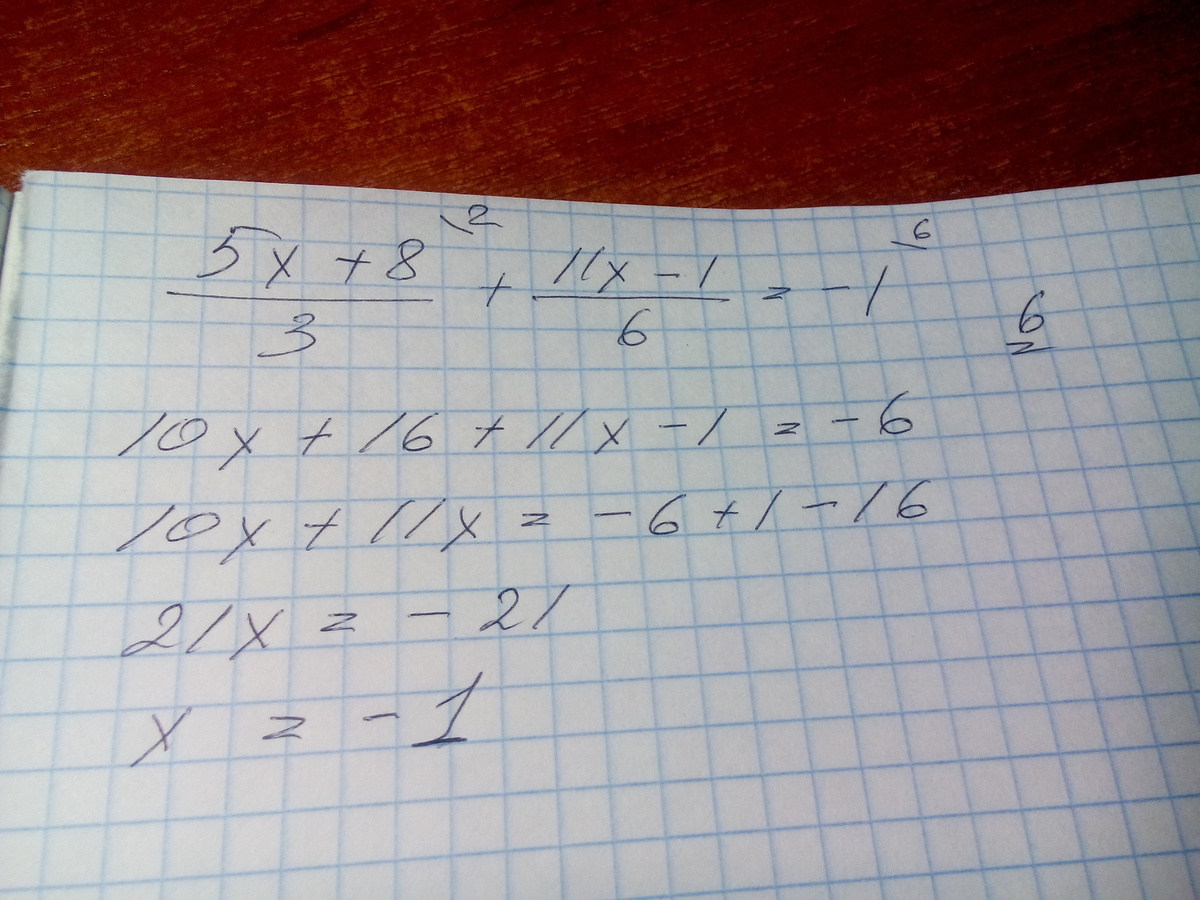 (5x + 8)/3 \2 + (11x - 1)/6 = -1 \6
6
10x + 16 + 11x - 1 = -6
10x + 11x = -6 + 1 - 16
21x = -21
x = -1